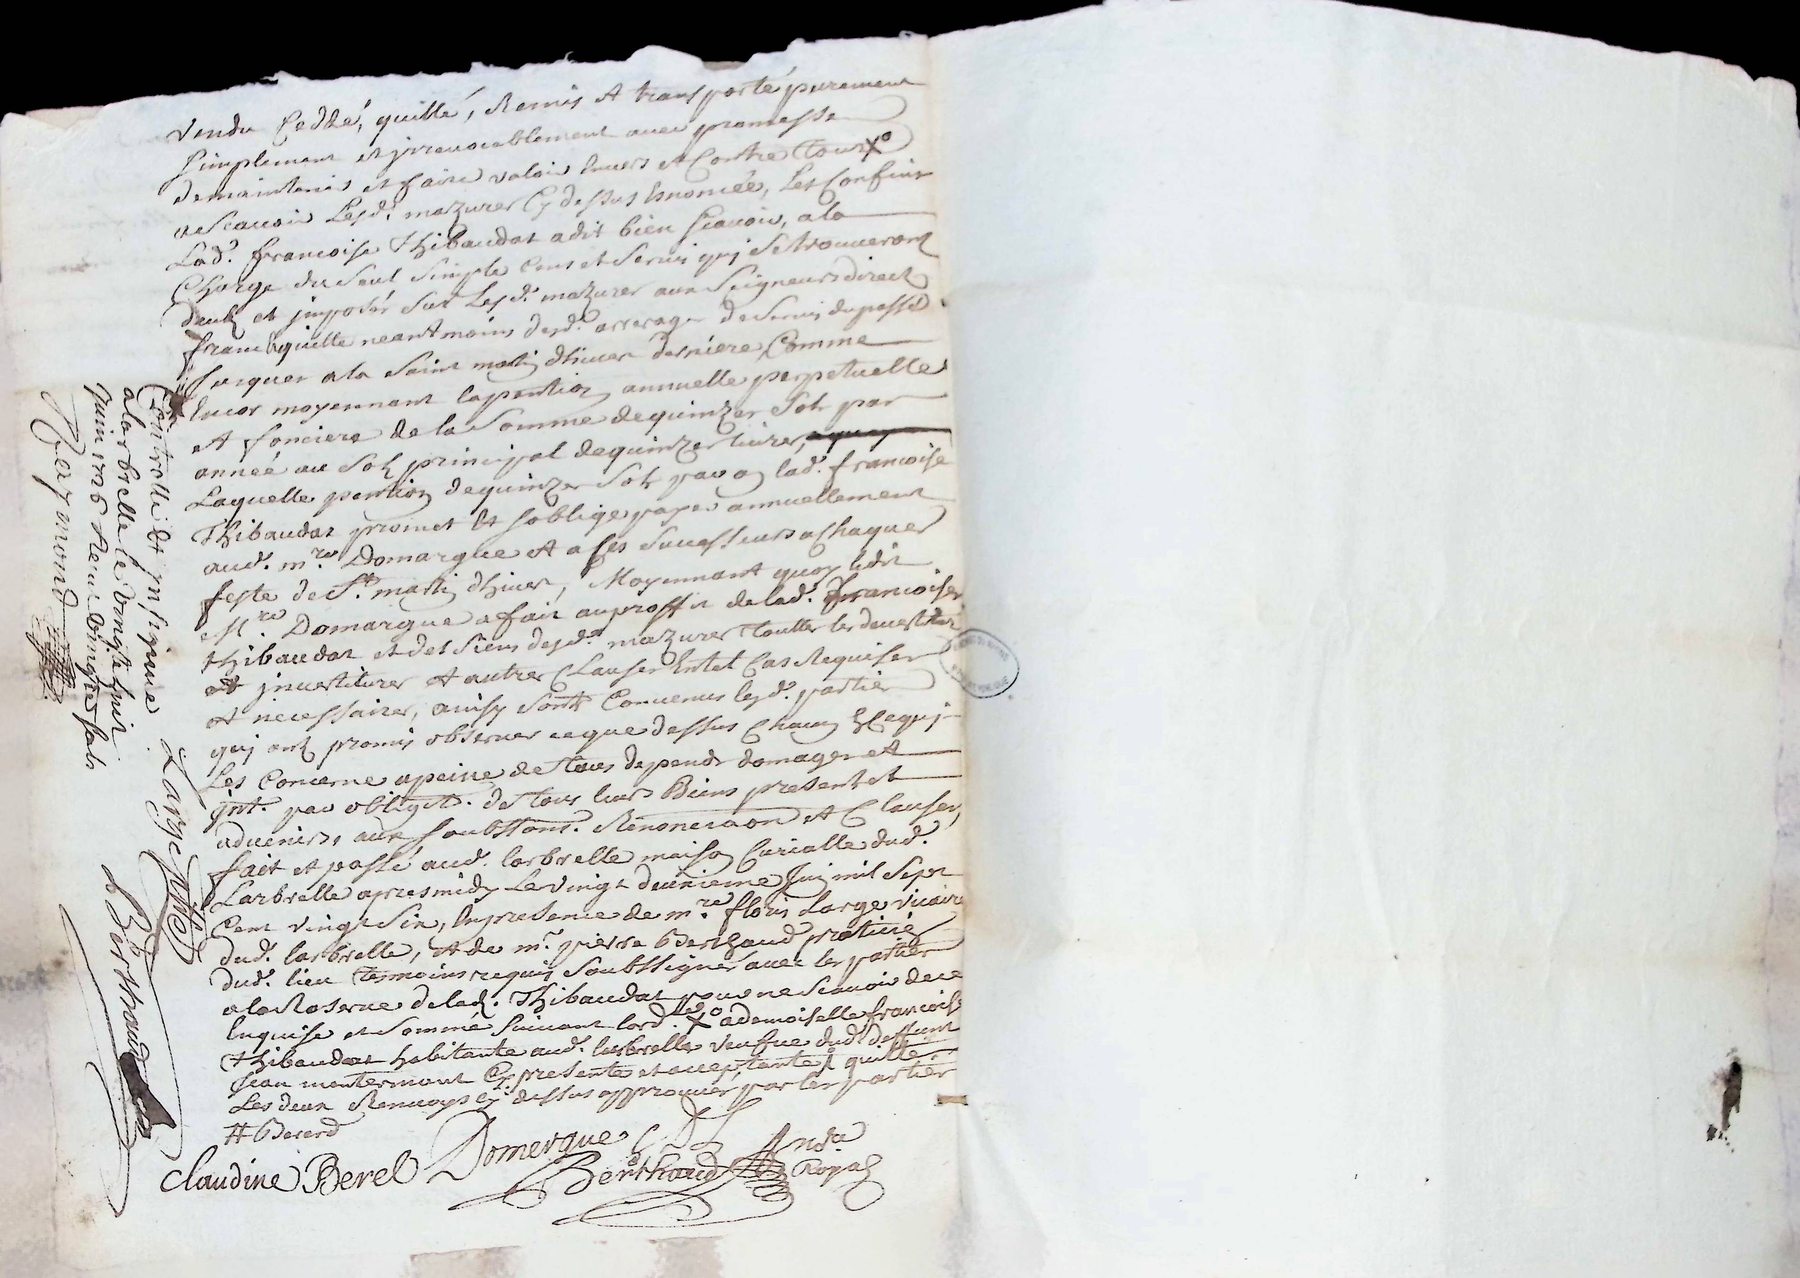 vendu Cedhé, quitté, Remis et transporté purement
simplement et jrrevocablement avec promesse
de maintenir et faire valoir Envers et Contre tous X°
a scavoir Lesd. mazures Cy dessus Enoncée, Les Confins
Lad. francoise Thibaudat a dit bien scavoir, a la
Charge du seul simple Cens et servis quj se trouveront
deubz et jmposés sur Lesd. mazures aux Seigneurs direct
franc & quitte neantmoins desd. arrerages de servis du passé
jusques a la saint martin dhiver derniere Comme
Encor moyennant la pention annuelle perpetuelle
et fonciere de la somme de quinzes sols par
année au sol principal de quinzes livres,
Laquelle pention de quinzes sols par an lad. francoise
Thibaudat promet et soblige payer annuellement
aud. mre. Domargue et a ses successeurs a Chaques
feste de St. martin dhiver, Moyennant quoy ledit
Mre. Domargue a fait au proffit de lad. francoises
thibaudat et des siens desd. mazures touttes les devestitures
et jnvestitures et autres Clauses En tel Cas Requises
et necessaires, ainsy sont Convenus lesd. parties
quj ont promis observer ce que dessus Chacun En ce quj
Les Concerne a peine de tous depends domages et
jnt. par obligat. de tous leurs Biens presents et
advenirs, aux soubstons. Renonciaon et Clauses,
fait et passé aud. larbrelle maison Curialle dud.
Larbrelle apres midy Le vingt deuxieme Juin mil sept
Cent vingt six, En presence de mre. floris Large vicaire
dud. larbrelle, et de mr. pierre Berthaud praticien
dud. lieu temoins requis soubssignés avec les parties
a la Reserve de lad. Thibaudat pour ne scavoir de ce
Enquise et sommé suivant lord. X° ademoiselle francoise
Thibaudat habitante aud. larbrelle veufve dud. deffunt
Jean montermant Cy presente et acceptante # quitte
Les deux Renvoys cy dessus approuvés par les parties
# Bererd
Claudine Berel Domergue C. D L
Berthaud Nore Royal
Controllé et jnsinué
a larbrelle le vingt huit
juin 1726 Receu vingt sols
Reymond
Large vic
P Berthaud